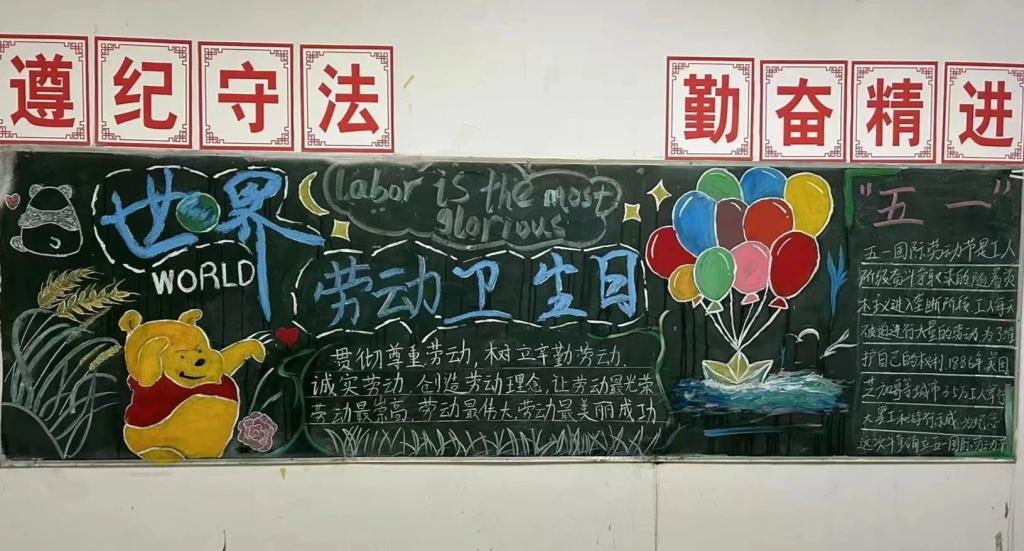 遵纪守法
勤奋精进
世界
WORLD
labor is the most
glorious
劳动卫生日
贯彻尊重劳动,树立辛勤劳动.
诚实劳动.创造劳动理念.让劳动最光荣
劳动最崇高.劳动最伟大劳动最美丽成功
"五一"
五一国际劳动节是工人
阶级奋斗争取来的随着资
本主义进入垄断阶段.工人每天
被迫进行大量的劳动为了维
护自己的权利.1886年美国
芝加哥等城市35万工人举行
大罢工和游行示威.为纪念
这次牛等确立五一国际劳动节